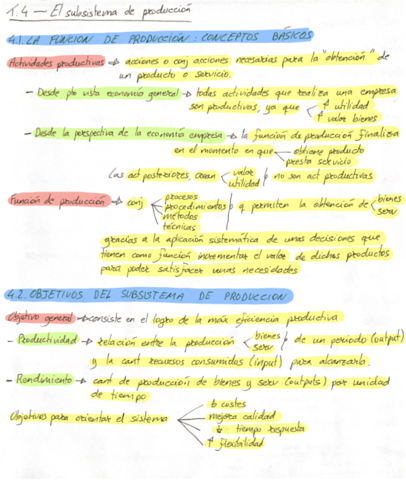 T.4 — El subsistema de producción
4.1. LA FUNCION DE PRODUCCIÓN: CONCEPTOS BÁSICOS
Actividades productivas → acciones o conj acciones necesarias para la "obtención" de
un producto o servicio.
- Desde pto vista economía general → todas actividades que realiza una empresa
son productivas, ya que ↑ utilidad
↑ valor bienes
- Desde la perspectiva de la economía empresa → la función de producción finaliza
en el momento en que obtiene producto
presta servicio
Las act posteriores, crean valor
utilidad
no son act productivas
Función de producción → conj procesos
procedimientos
métodos
técnicas
q permiten la obtención de bienes
serv
gracias a la aplicación sistemática de unas decisiones que
tienen como función incrementar el valor de dichos productos
para poder satisfacer unas necesidades
4.2. OBJETIVOS DEL SUBSISTEMA DE PRODUCCION
Objetivo general → consiste en el logro de la max eficiencia productiva
- Productividad → relación entre la producción bienes
serv
de un periodo (output)
y la cant recursos consumidos (input) para alcanzarlo.
- Rendimiento → cant de producción de bienes y serv (outputs) por unidad
de tiempo
Objetivos para orientar el sistema
↓ costes
mejora calidad
↓ tiempo respuesta
↑ flexibilidad